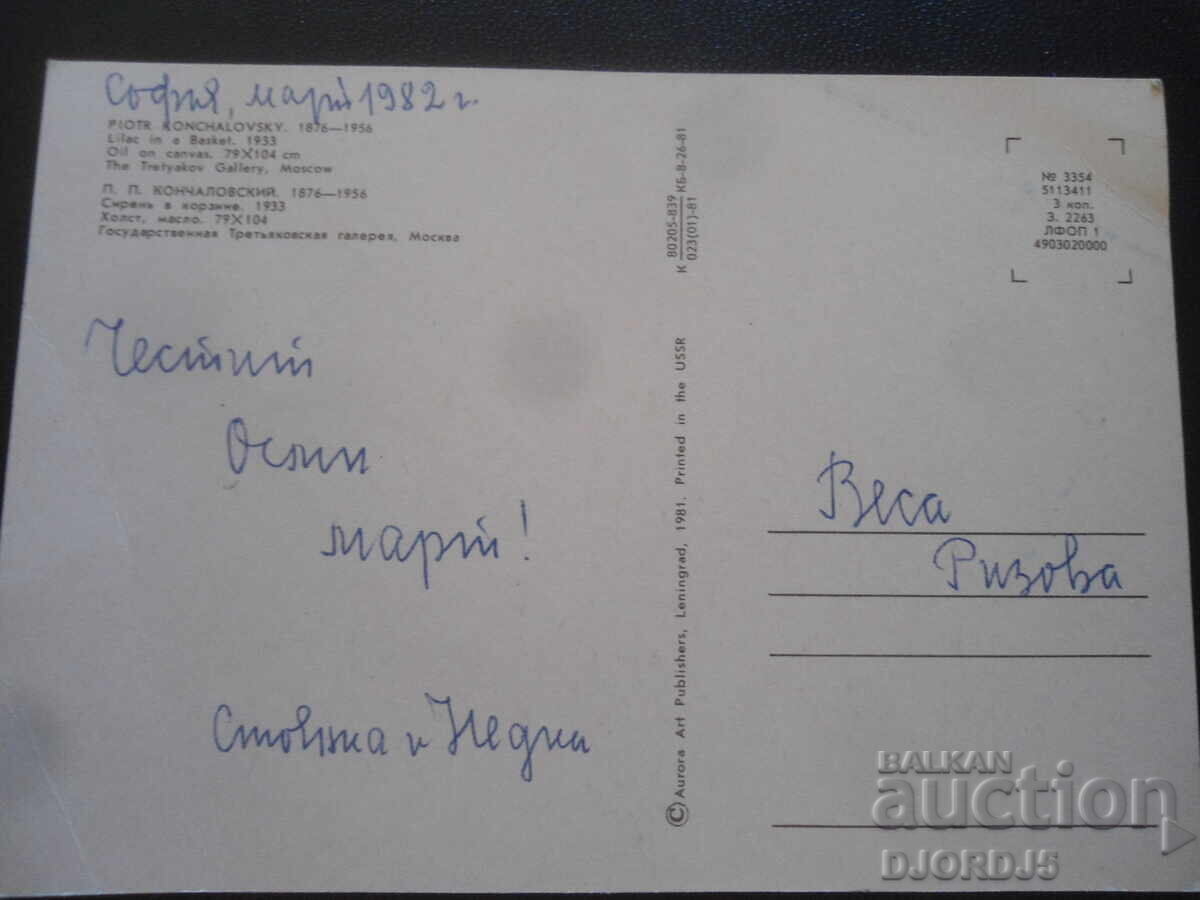 София, март 1982 г.
PIOTR KONCHALOVSKY. 1876—1956
Lilac in a Basket. 1933
Oil on canvas. 79X104 cm
The Tretyakov Gallery, Moscow
П. П. КОНЧАЛОВСКИЙ. 1876—1956
Сирень в корзине. 1933
Холст, масло. 79X104
Государственная Третьяковская галерея, Москва
Честит
Осми
март!
и Недка
К 80205-839 КБ-8-26-81
023(01)-81
© Aurora Art Publishers, Leningrad, 1981. Printed in the USSR
№ 3354
5113411
3 коп.
З. 2263
ЛФОП 1
4903020000
Веса
Ризова
BALKAN
auction
DJORDJ5